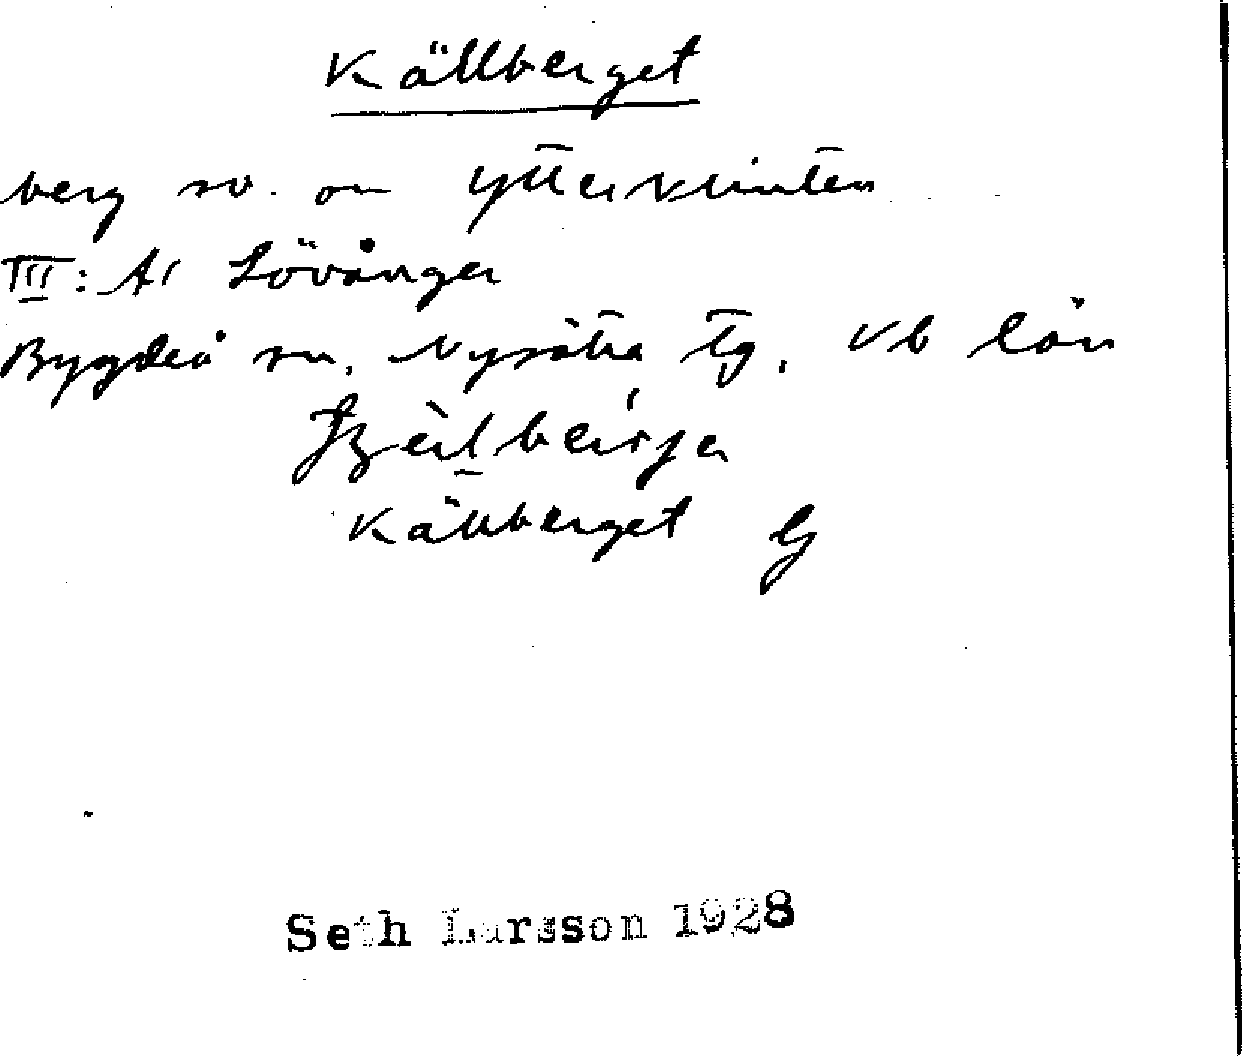 Källberget
berg sv. om Ytterklinten
III: A1 Lövånger
Bygdeå sn, Nysätra tg, Vb län
Källberget G
Seth Larsson 1928